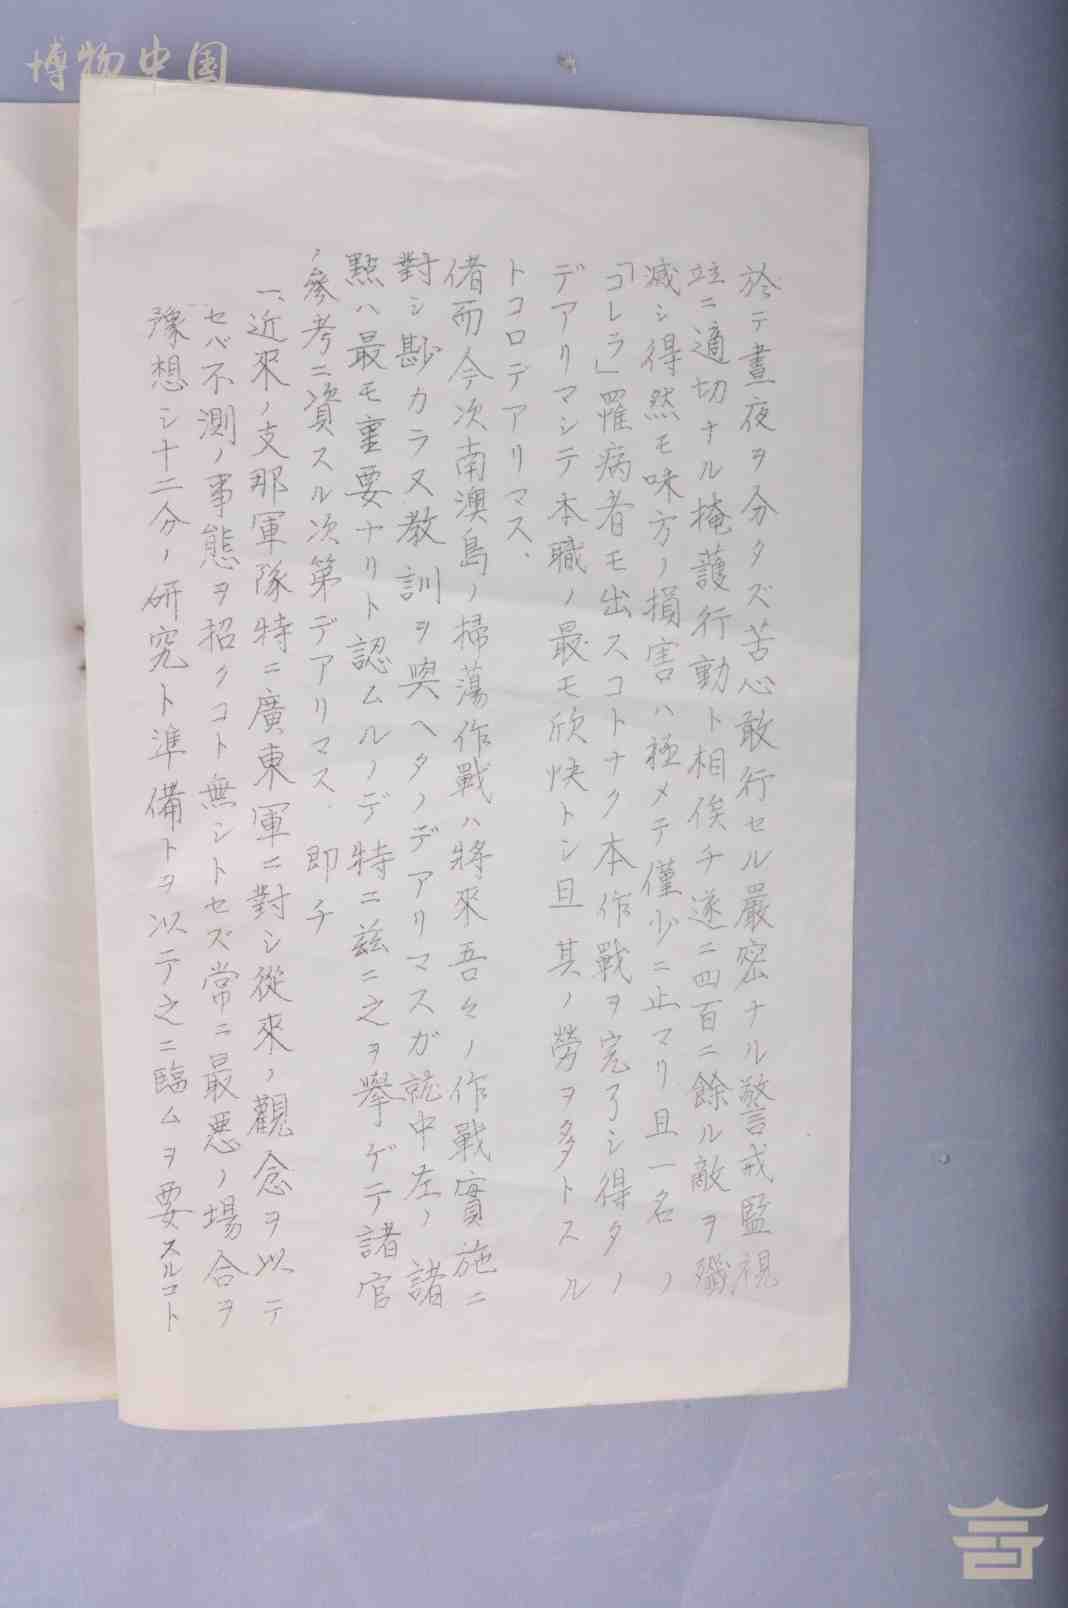 博物中国
於テ晝夜ヲ分タズ苦心敢行セル嚴密ナル警戒監視
竝ニ適切ナル掩護行動ト相俟チ遂ニ四百ニ餘ル敵ヲ殲
滅シ得然モ味方ノ損害ハ極メテ僅少ニ止マリ且一名ノ
「コレラ」罹病者モ出スコトナク本作戰ヲ完了シ得タノ
デアリマシテ本職ノ最モ欣快トシ且其ノ勞ヲ多トスル
トコロデアリマス、
偖而今次南澳島ノ掃蕩作戰ハ將來吾々ノ作戰實施ニ
對シ尠カラヌ教訓ヲ與ヘタノデアリマスガ就中左ノ諸
點ハ最モ重要ナリト認ムルノデ特ニ茲ニ之ヲ擧ゲテ諸官
ノ參考ニ資スル次第デアリマス、即チ
一、近來ノ支那軍隊特ニ廣東軍ニ對シ從來ノ觀念ヲ以テ
セバ不測ノ事態ヲ招クコト無シトセズ常ニ最悪ノ場合ヲ
豫想シ十二分ノ研究ト準備トヲ以テ之ニ臨ムヲ要スルコト